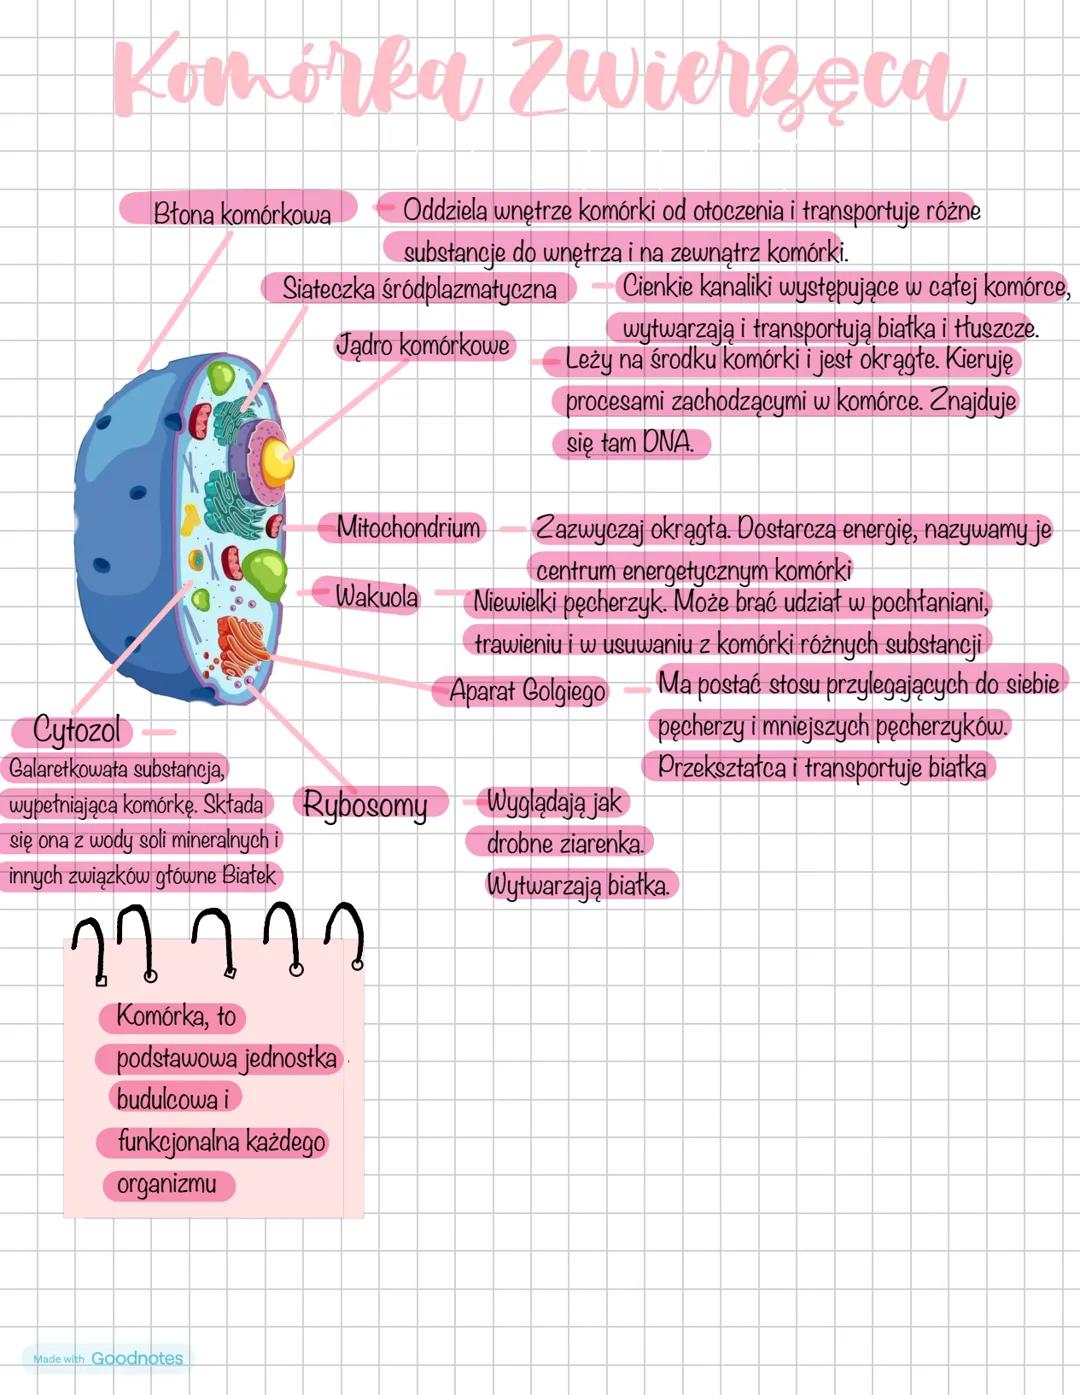 Komórka Zwierzęca
Błona komórkowa
Oddziela wnętrze komórki od otoczenia i transportuje różne
substancje do wnętrza i na zewnątrz komórki.
Siateczka śródplazmatyczna
Cienkie kanaliki występujące w całej komórce,
wytwarzają i transportują białka i tłuszcze.
Jądro komórkowe
Leży na środku komórki i jest okrągłe. Kieruję
procesami zachodzącymi w komórce. Znajduje
się tam DNA.
Mitochondrium
Zazwyczaj okrągła. Dostarcza energię, nazywamy je
centrum energetycznym komórki
Wakuola
Niewielki pęcherzyk. Może brać udział w pochłanianiu,
trawieniu i w usuwaniu z komórki różnych substancji
Aparat Golgiego
Ma postać stosu przylegających do siebie
pęcherzy i mniejszych pęcherzyków.
Przekształca i transportuje białka
Cytozol
Galaretkowata substancja,
wypełniająca komórkę. Składa
się ona z wody soli mineralnych i
innych związków główne Białek
Rybosomy
Wyglądają jak
drobne ziarenka.
Wytwarzają białka.
Komórka, to
podstawowa jednostka
budulcowa i
funkcjonalna każdego
organizmu
Made with Goodnotes